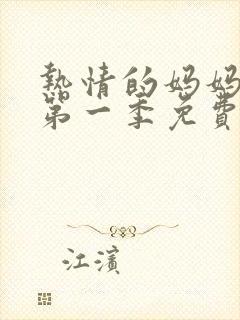 熱情的妈妈
第一季免費
江濱